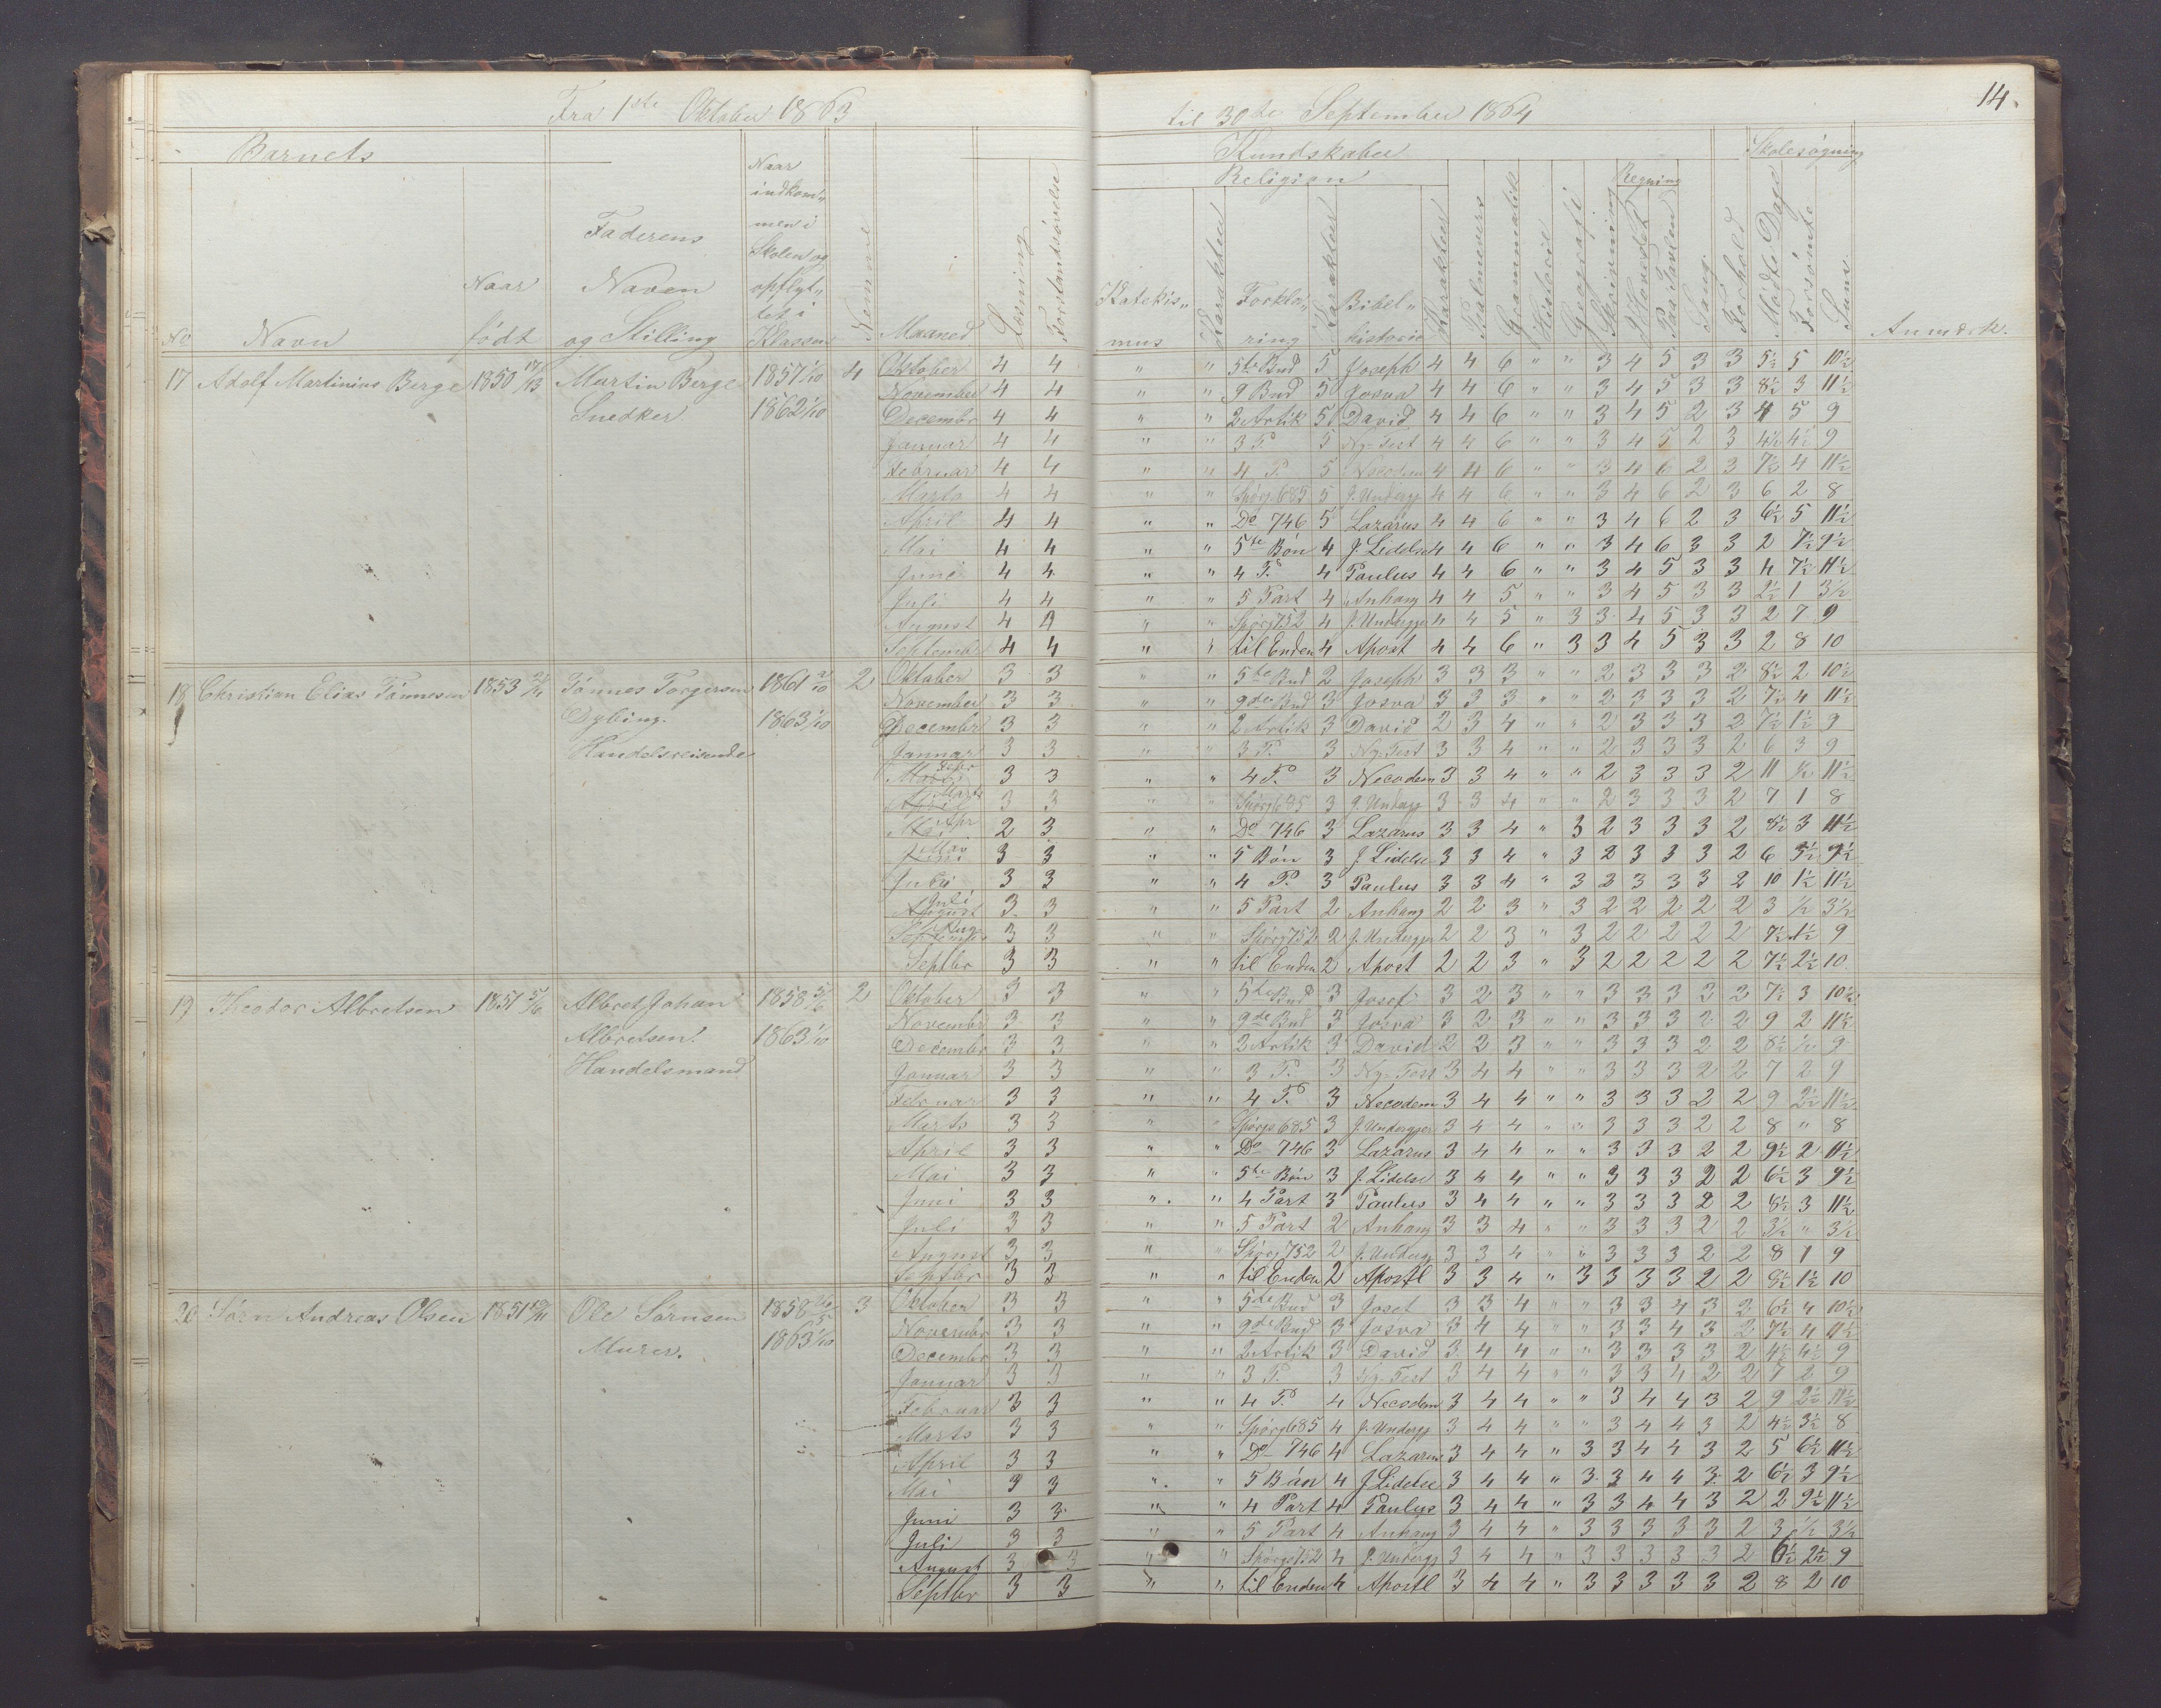 Fra 1ste Oktober 1863 til 30te September 1864
14.
Barnets
Kundskaber
Skolesøgning
Religion
Regning
No Navn Naar født Faderens Navn og Stilling Naar indkommen i Skolen og opflyttet i Klassen Nemme Maaned Læsning Forstandsøvelse Katekismus Karakter Forklaring Karakter Bibelhistorie Karakter Psalmevers Grammatik Historie Geografi Skrivning I Hovedet Paa Tavlen Sang Forhold Mødte Dage Forsømte Sum Anmærk.
17 Adolf Martinius Berge 1850 Martin Berge 1857 1/10 4 Oktober 4 4 " " 5te Bud 5 Joseph 4 4 6 " " 3 4 5 3 3 5½ 5 10½
November 4 4 " " 9 Bud 5 Josva 4 4 6 " " 3 4 5 3 3 8½ 3 11½
Snedker 1862 1/10 Decembr 4 4 " " 2 Artik 5 David 4 4 6 " " 3 4 5 2 3 4 5 9
Januar 4 4 " " 3 P. 5 Ny-Test 4 4 6 " " 3 4 5 2 3 4½ 4½ 9
Februar 4 4 " " 4 P. 5 Necodem 4 4 6 " " 3 4 6 2 3 7½ 4 11½
Marts 4 4 " " Spørg 685 5 J. Undergj 4 4 6 " " 3 4 6 2 3 6 2 8
April 4 4 " " Do 746 5 Lazarus 4 4 6 " " 3 4 6 2 3 6½ 5 11½
Mai 4 4 " " 5te Bøn 4 J. Lidelse 4 4 6 " " 3 4 6 3 3 2 7½ 9½
Juni 4 4 " " 4 P. 4 Paulus 4 4 6 " " 3 4 5 3 3 4 7½ 11½
Juli 4 4 " " 5 Part 4 Anhang 4 4 5 " " 3 4 5 3 3 2½ 1 3½
August 4 4 " " Spørg 752 4 J. Undergje 4 4 5 " 3 3 4 5 3 3 2 7 9
Septembr 4 4 " " til Enden 4 Apost 4 4 6 " 3 3 4 5 3 3 2 8 10
18 Christian Elias Tønnesen 1853 Tønnes Torgersen 1861 2 Oktober 3 3 " " 5te Bud 2 Joseph 3 3 3 " " 2 3 3 3 2 8½ 2 10½
November 3 3 " " 9de Bud 3 Josva 3 3 3 " " 2 3 3 3 2 7½ 4 11½
Dybing. 1863 1/10 Decembr 3 3 " " 2 Artik 3 David 2 3 4 " " 2 3 3 3 2 7½ 1½ 9
Handelsreisende Januar 3 3 " " 3 P. 3 Ny-Test 3 3 4 " " 2 3 3 3 2 6 3 9
Febr 3 3 " " 4 P. 3 Necodem 3 3 4 " " 2 3 3 3 2 11 ½ 11½
April Marts 3 3 " " Spørg 685 3 J. Undergj 3 3 4 " " 2 3 3 3 2 7 1 8
Mai Apr 2 3 " " Do 746 3 Lazarus 3 3 4 " 3 2 3 3 3 2 8½ 3 11½
Juni Mai 3 3 " " 5 Bøn 3 J. Lidelse 3 3 4 " 3 2 3 3 3 2 6 3½ 9½
Juni 3 3 " " 4 P. 3 Paulus 3 3 4 " 3 2 3 3 3 2 10 1½ 11½
August Juli 3 3 " " 5 Part 2 Anhang 2 2 3 " 3 2 2 2 2 2 3 ½ 3½
September Aug 3 3 " " Spørg 752 2 J. Undergje 2 2 3 " 3 2 2 2 2 2 7½ 1½ 9
Septbr 3 3 " " til Enden 2 Apost 2 2 3 " 3 2 2 2 2 2 7½ 2½ 10
19 Theodor Albretsen 1851 Albret Johan 1858 2 Oktober 3 3 " " 5te Bud 3 Josef 3 2 3 " " 3 3 3 2 2 7½ 3 10½
Albretsen. 1863 1/10 Novembr 3 3 " " 9de Bud 3 Josva 3 2 3 " " 3 3 3 2 2 9 2 11½
Decembr 3 3 " " 2 Artik 3 David 2 2 3 " " 3 3 3 2 2 8½ ½ 9
Handelsmand Januar 3 3 " " 3 P. 3 Ny-Test 3 4 4 " " 3 3 3 2 2 7 2 9
Februar 3 3 " " 4 P. 3 Necodem 3 4 4 " " 3 3 3 2 2 9 2½ 11½
Marts 3 3 " " Spørgs 685 3 J. Undergjer 3 4 4 " " 3 3 3 2 2 8 " 8
April 3 3 " " Do 746 3 Lazarus 3 4 4 " " 3 3 3 2 2 9½ 2 11½
Mai 3 3 " " 5te Bøn 3 J. Lidelse 3 4 4 " " 3 3 3 2 2 6½ 3 9½
Juni 3 3 " " 4 Part 3 Paulus 3 4 4 " " 3 3 3 2 2 8½ 3 11½
Juli 3 3 " " 5 Part 2 Anhang 3 3 4 " " 3 3 3 2 2 3½ " 3½
August 3 3 " " Spørg 752 2 J. Undergj 3 3 4 " " 3 3 3 2 2 8 1 9
Septbr 3 3 " " til Enden 2 Apostl 3 3 4 " 3 3 3 3 2 2 8½ 1½ 10
20 Jørn Andreas Olsen 1851 Ole Sørnsen 1858 3 Oktober 3 3 " " 5te Bud 3 Josef 3 3 4 " " 3 3 4 3 2 6½ 4 10½
Novembr 3 3 " " 9de Bud 3 Josva 3 4 4 " " 3 3 4 3 2 7½ 4 11½
Murer. 1863 1/10 Decembr 3 3 " " 2 Artik 3 David 3 4 4 " " 3 3 3 3 2 4½ 4½ 9
Januar 3 3 " " 3 P. 3 Ny-Test 3 4 4 " " 3 3 4 2 2 7 2 9
Februar 3 3 " " 4 P. 4 Necodem 3 4 4 " " 3 4 4 3 2 9 2½ 11½
Marts 3 3 " " Spørg 685 4 J. Undergj 3 4 4 " " 3 4 4 3 2 4½ 3½ 8
April 3 3 " " Do 746 4 Lazarus 3 4 4 " 3 3 4 4 3 2 5 6½ 11½
Mai 3 3 " " 5 Bøn 4 J Lidelse 3 4 4 " 3 3 4 4 3 2 6½ 3 9½
Juni 3 3 " " 4 Part 4 Paulus 3 4 4 " 3 3 4 4 3 2 2 9½ 11½
Juli 3 3 " " 5 Part 4 Anhang 3 4 4 " 3 3 3 3 3 2 3 ½ 3½
August 3 3 " " Spørgs 752 4 J. Undergj 3 4 4 " 3 3 3 3 3 2 6½ 2½ 9
Septbr 3 3 " " til Enden 4 Apostl 3 4 4 " 3 3 3 3 3 2 8 2 10